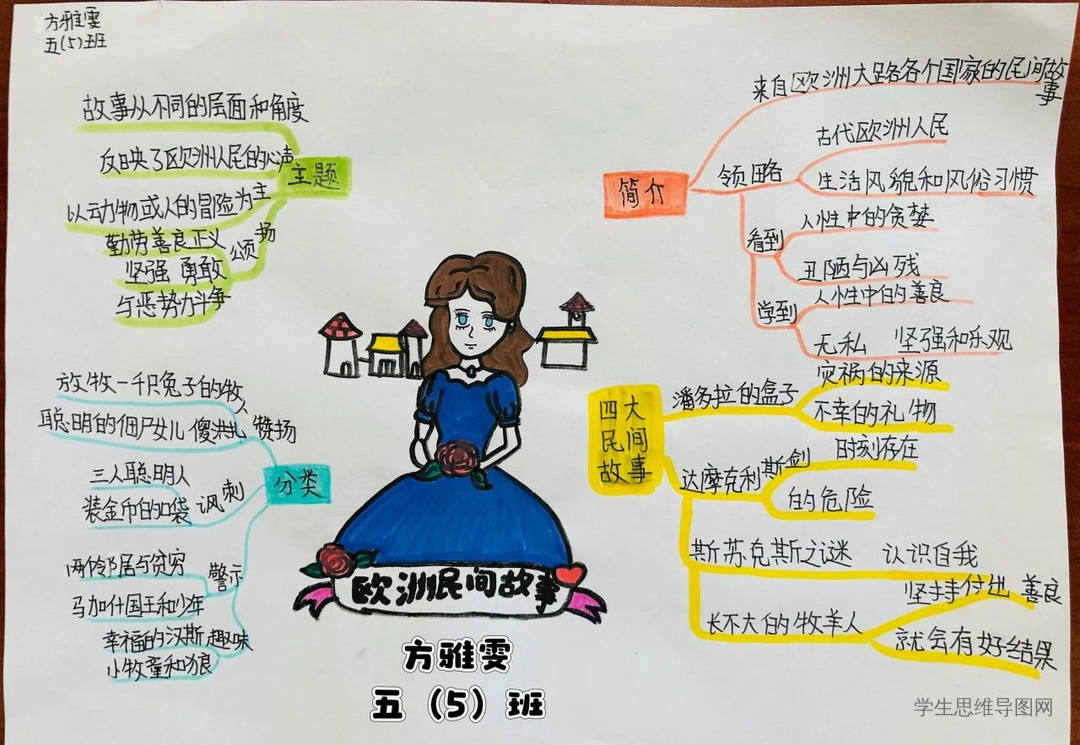 方雅雯
五(5)班
故事从不同的层面和角度
反映了欧洲人民的心声
主题
以动物或人的冒险为主
勤劳善良正义
坚强 勇敢
与恶势力斗争
颂扬
放牧一千只兔子的牧人
聪明的佃户女儿 傻洪扎
赞扬
三人聪明人
装金币的口袋
讽刺
分类
两邻居与贫穷
马加什国王和少年
警示
幸福的汉斯
小牧童和狼
趣味
欧洲民间故事
方雅雯
五（5）班
简介
来自欧洲大路各个国家的民间故事
领略
古代欧洲人民
生活风貌和风俗习惯
看到
人性中的贪婪
丑陋与凶残
学到
人性中的善良
无私 坚强和乐观
四大
民间
故事
潘多拉的盒子
灾祸的来源
不幸的礼物
达摩克利斯剑
时刻存在
的危险
斯芬克斯之谜 认识自我
长不大的牧羊人
坚持付出 善良
就会有好结果
学生思维导图网